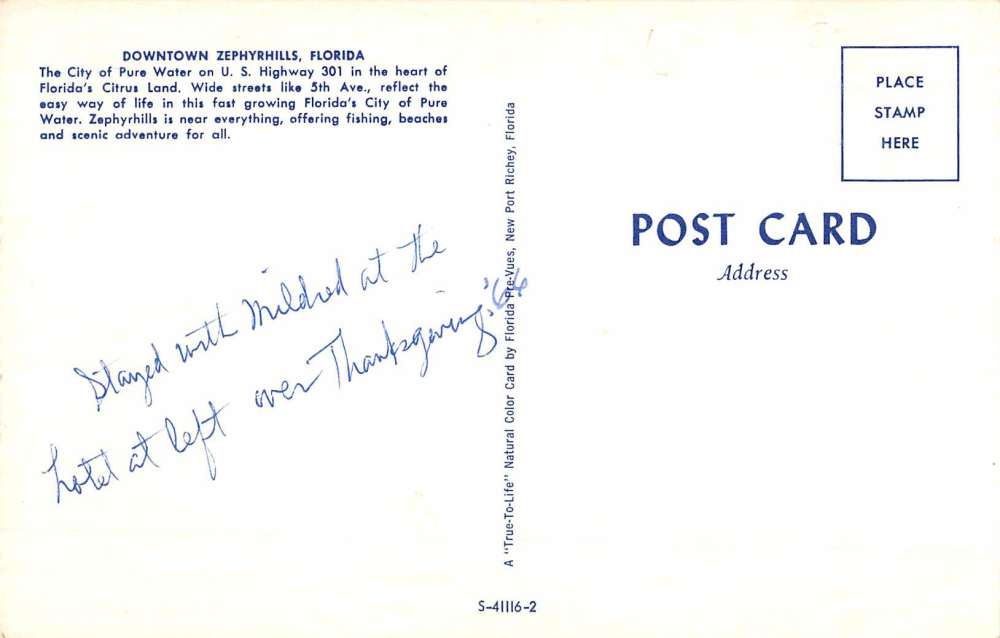 DOWNTOWN ZEPHYRHILLS, FLORIDA
The City of Pure Water on U. S. Highway 301 in the heart of
Florida's Citrus Land. Wide streets like 5th Ave., reflect the
easy way of life in this fast growing Florida's City of Pure
Water. Zephyrhills is near everything, offering fishing, beaches
and scenic adventure for all.
Stayed with Mildred at the
hotel at left over Thanksgiving '64
A "True-To-Life" Natural Color Card by Florida Pre-Vues, New Port Richey, Florida
S-41116-2
PLACE
STAMP
HERE
POST CARD
Address